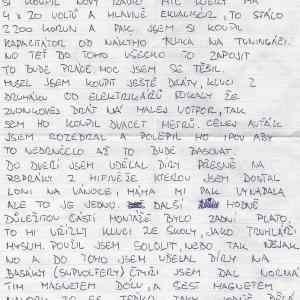 SI KOUPIL NOVÝ RÁDIO HTC KTERÝ MÁ
4 x 20 VOLTŮ A HLAVNĚ EKVALISER, TO STÁLO
2200 KORUN A PAK JSEM SI KOUPIL
KAPACITÁTOR OD NÁKÝHO ŤUKA NA TUNINGÁČI.
NO TEĎ DO TOHO VŠECHO TO ZAPOJIT
TO BUDE PRÁCE MOC JSEM SE TĚŠIL
MUSEL JSEM KOUPIT JEŠTĚ DRÁTY, KLUCI Z
DRUHÁKU OD ELEKTRIKÁŘŮ ŘÍKALY ŽE
ZVONKOVEJ DRÁT MÁ MALEJ VOTPOR, TAK
SEM HO KOUPIL DVACET METRŮ. CELEJ AUŤÁK
JSEM ROZEDRAL A POLEPIL HO IPOU ABY
TO NEDRNČELO AŽ TO BUDE BASOVAT.
DO DVEŘÍ JSEM UDĚLAL DÍRY PŘESNĚ NA
REPRÁKY Z HIFIVĚŽE KTEROU JSEM DOSTAL
LONI NA VÁNOCE, MÁMA MI PAK VYNADALA
ALE TO JE JEDNO. DALŠÍ HODNĚ
DŮLEŽITOU ČÁSTÍ MONTÁŽE BYLO ZADNÍ PLATO.
TO MI UŘÍZLY KLUCI ZE ŠKOLY, JAKO TRUHLÁŘI
MYSLIM. POUŽIL JSEM SOLOLIT, NEBO TAK NĚJAK.
NO A DO TOHO JSEM UDĚLAL DÍRY NA
BASÁKY (SUPVOLFERY) ČTYŘI JSEM DAL NORMÁ
TIM MAGNETEM DOLU, A ŠEST MAGNETEM